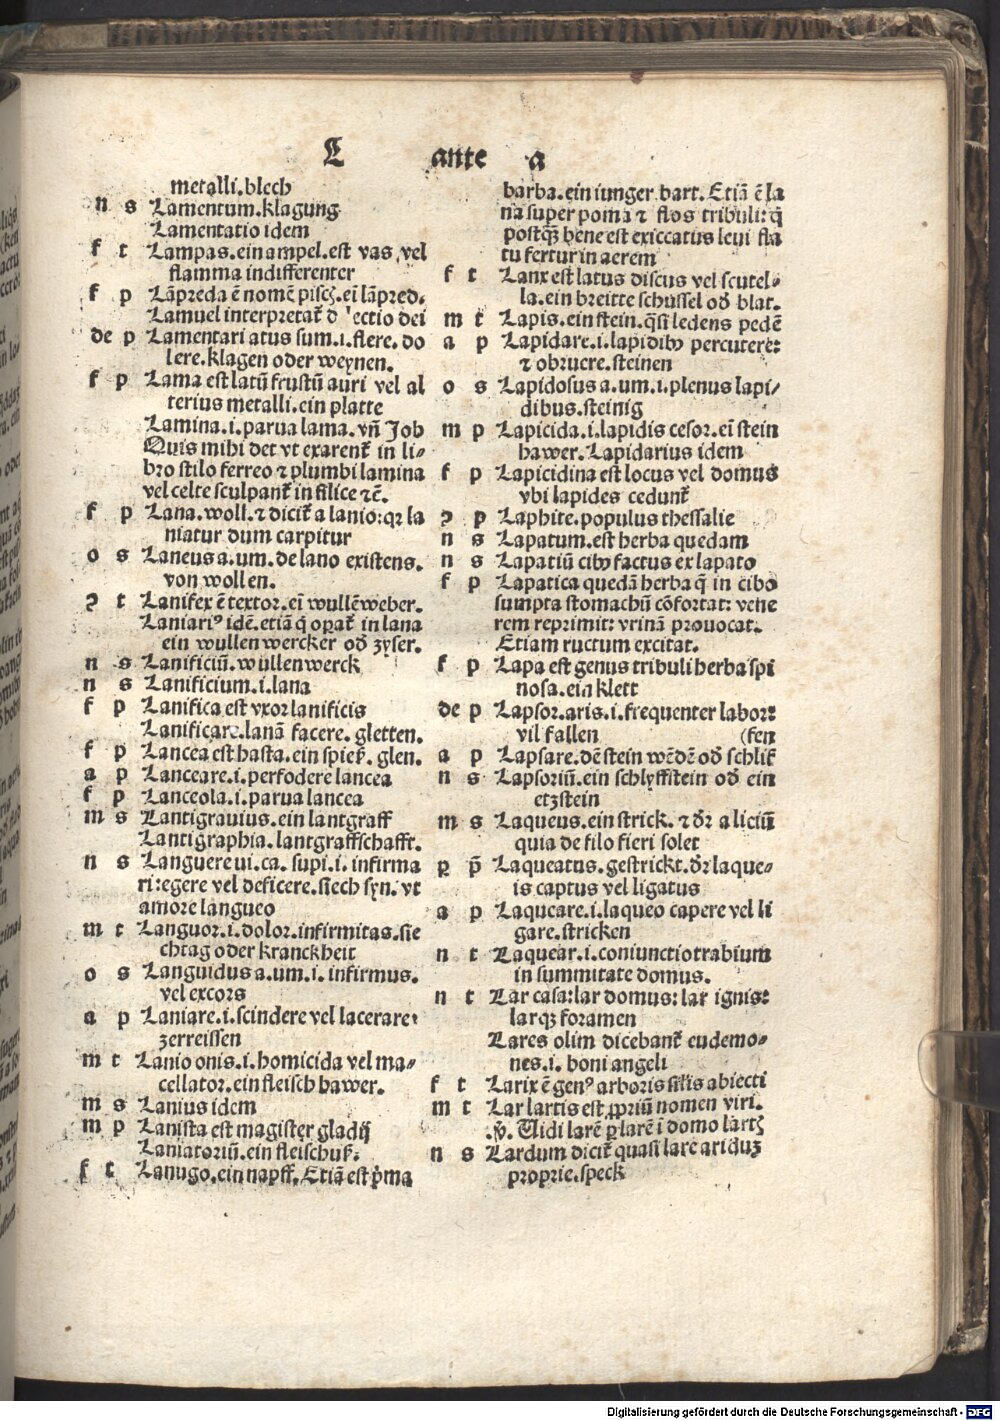 L ante a
metalli.blech
n s Lamentum.klagung
Lamentatio idem
f t Lampas.ein ampel.est vas vel
flamma indifferenter
f p Lāpreda ē nomē piscꝭ.eī lāpred.
Lamuel interpretat᷑ d 'ectio dei
de p Lamentari atus sum.i.flere.do
lere.klagen oder weynen.
f p Lama est latū frustū auri vel al
terius metalli.ein platte
Lamina.i.parua lama.vñ Job
Quis mihi det vt exarent᷑ in li⸗
bro stilo ferreo ⁊ plumbi lamina
vel celte sculpant᷑ in silice ⁊c̄.
f p Lana.woll.⁊ dicit᷑ a lanio:qꝛ la
niatur dum carpitur
o s Laneus a.um.de lano existens.
von wollen.
ꝯ t Lanifex ē textor.eī wullēweber.
Laniariꝰ idē.etiā q̄ oꝑat᷑ in lana
ein wullen wercker od̄ zyser.
n s Lanificiū.wullenwerck
n s Lanificium.i.lana
f p Lanifica est vxor lanificis
Lanificare.lanā facere.gletten.
f p Lancea est hasta.ein spieß.glen.
a p Lanceare.i.perfodere lancea
f p Lanceola.i.parua lancea
m s Lantigrauius.ein lantgraff
Lantigraphia.lantgraffschafft.
n s Languere ui.ca. supi.i. infirma
ri:egere vel deficere.siech syn.vt
amore langueo
m t Languor.i.dolor.infirmitas.sie
chtag oder kranckheit
o s Languidus a.um.i. infirmus.
vel excors
a p Laniare.i.scindere vel lacerare:
zerreissen
m t Lanio onis.i.homicida vel ma⸗
cellator.ein fleisch hawer.
m s Lanius idem
m p Lanista est magister gladij
Laniatoriū.ein fleischuß.
f t Lanugo.ein napff.Etiā est p̄ma
barba.ein iunger bart.Etiā ē la
na super poma ⁊ flos tribuli:q̄
postqꝫ bene est exiccatus leui fla
tu fertur in aerem
f t Lanx est latus discus vel scutel⸗
la.ein breitte schüssel od̄ blat.
m t Lapis.ein stein.q̄si ledens pedē
a p Lapidare.i.lapidibꝰ percutere:
⁊ obruere.steinen
o s Lapidosus a.um.i.plenus lapi⸗
dibus.steinig
m p Lapicida.i.lapidis cesor.eī stein
hawer.Lapidarius idem
f p Lapicidina est locus vel domus
vbi lapides cedunt᷑
ꝯ p Laphite.populus thessalie
n s Lapatum.est herba quedam
n s Lapatiū cibꝰ factus ex lapato
f p Lapatica quedā herba q̄ in cibo
sumpta stomachū cōfortat: vene
rem reprimit: vrinā prouocat.
Etiam ructum excitat.
f p Lapa est genus tribuli herba spi
nosa.ein klett
de p Lapsor.aris.i.frequenter labor:
vil fallen (fen
a p Lapsare.dē stein wēdē od̄ schlif
n s Lapsoriū.ein schlyffstein od̄ ein
etzstein
m s Laqueus.ein strick.⁊ dr̄ a liciū
quia de filo fieri solet
ꝑ p̄ Laqueatus.gestrickt.dr̄ laque⸗
is captus vel ligatus
a p Laqueare.i.laqueo capere vel li
gare.stricken
n t Laquear.i.coniunctio trabium
in summitate domus.
n t Lar casa:lar domus: lar ignis:
larqꝫ foramen
Lares olim dicebant᷑ eudemo⸗
nes.i. boni angeli
f t Larix ē genꝰ arboris silis abiecti
m t Lar lartis est ꝓpriū nomen viri.
.v̓. Uidi larē ꝑ larē i domo lartꝭ
n s Lardum dicit᷑ quasi lare aridūꝫ
proprie.speck
Digitalisierung gefördert durch die Deutsche Forschungsgemeinschaft - DFG